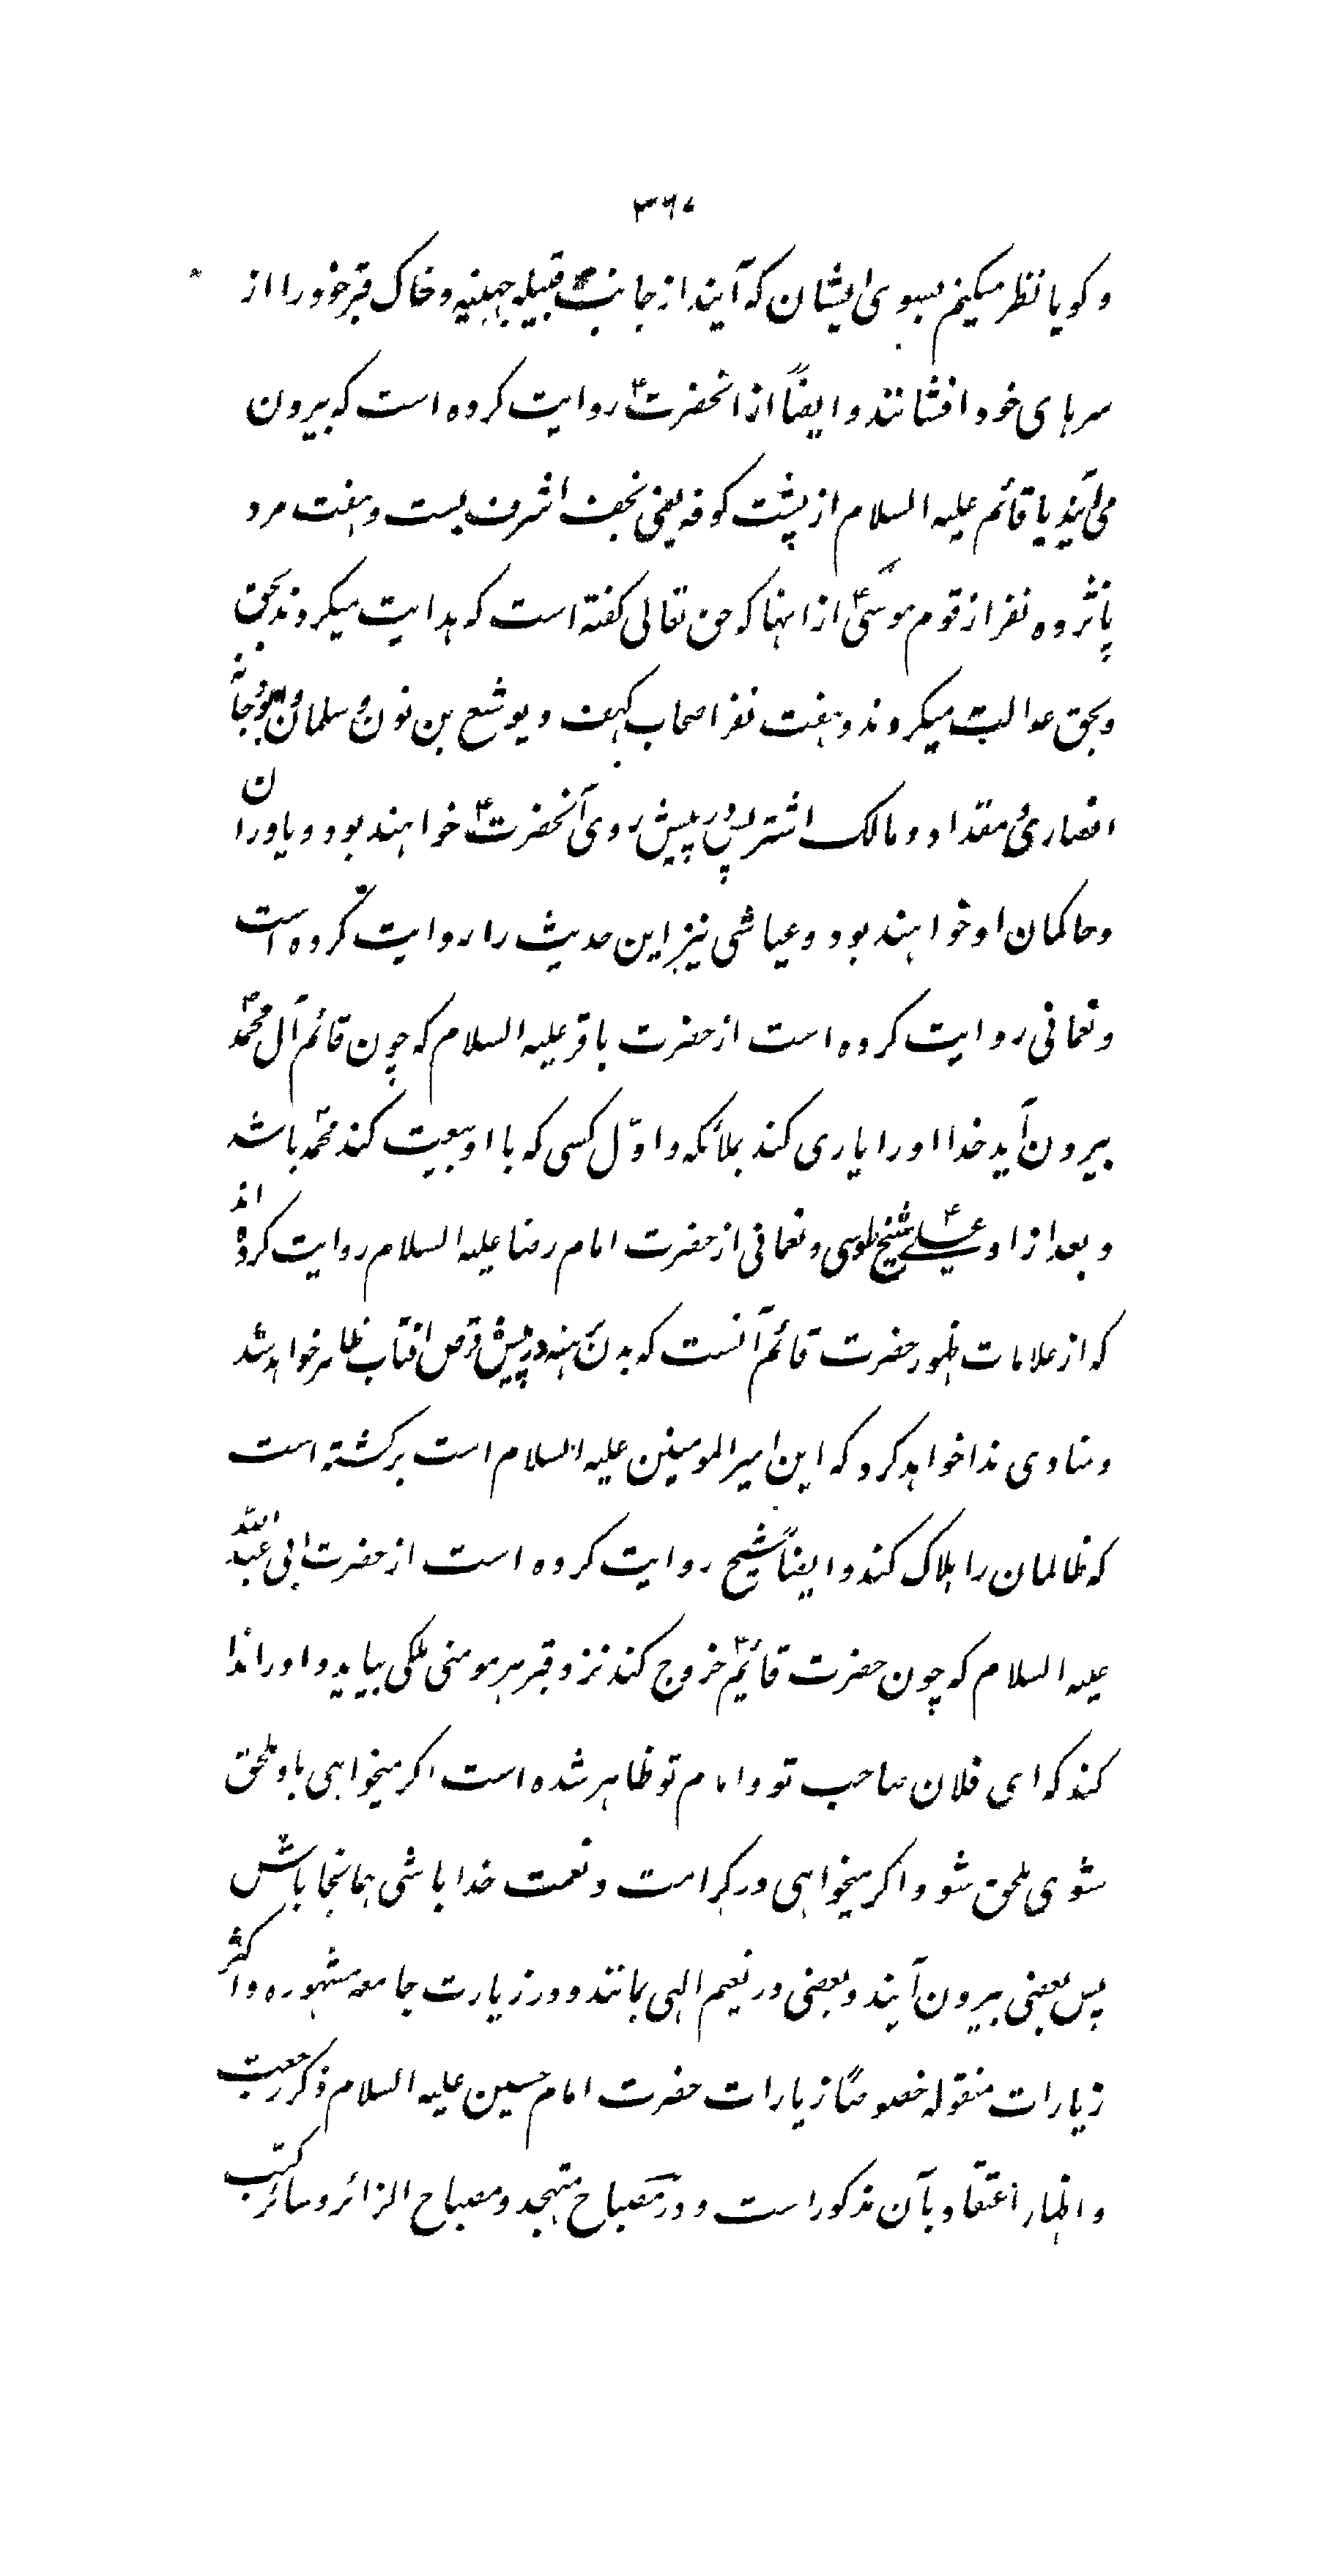 ۳۶۷
و کویا نظر میکنم بسوی ایشان که آیند از جانب قبیله جهینه و خاک قبر خود را از
سرهای خود افشانند و ایضاً از انحضرت ع روایت کرده است که بیرون
می آیند با قائم علیه السلام از پشت کوفه یعنی نجف اشرف بیست و هفت مرد
پانزده نفر از قوم موسی ع از انها که حق تعالی کفته است که هدایت میکردند بحق
و بحق عدالت میکردند و هفت نفر اصحاب کهف و یوشع بن نون و سلمان و ابو دجانه
انصاری و مقداد و مالک اشتر پس در پیش روی آنحضرت ع خواهند بود و یاوران
و حاکمان او خواهند بود و عیاشی نیز این حدیث را روایت کرده است
و نعمانی روایت کرده است از حضرت باقر علیه السلام که چون قائم آل محمد ص
بیرون آید خدا او را یاری کند بملائکه و اوّل کسی که با او بیعت کند محمد باشد
و بعد از او علی ع شیخ طوسی و نعمانی از حضرت امام رضا علیه السلام روایت کرده اند
که از علامات ظهور حضرت قائم آنست که بدن برهنه در پیش قرص افتاب ظاهر خواهد شد
و منادی ندا خواهد کرد که این امیر المومنین علیه السلام است برکشته است
که ظالمان را هلاک کند و ایضاً شیخ روایت کرده است از حضرت ابی عبد الله
علیه السلام که چون حضرت قائم ع خروج کند نزد قبر هر مومنی ملکی بیاید و او را ندا
کند که ای فلان صاحب تو و امام تو ظاهر شده است اکر میخواهی باو ملحق
شوی ملحق شو و اکر میخواهی در کرامت و نعمت خدا باشی همانجا باش
پس بعضی بیرون آیند و بعضی در نعیم الهی بمانند و در زیارت جامعه مشهوره و اکثر
زیارات منقوله خصوصاً زیارات حضرت امام حسین علیه السلام ذکر رجعت
و اظهار اعتقاد بآن مذکور است و در مصباح متهجد و مصباح الزائر و سائر کتب